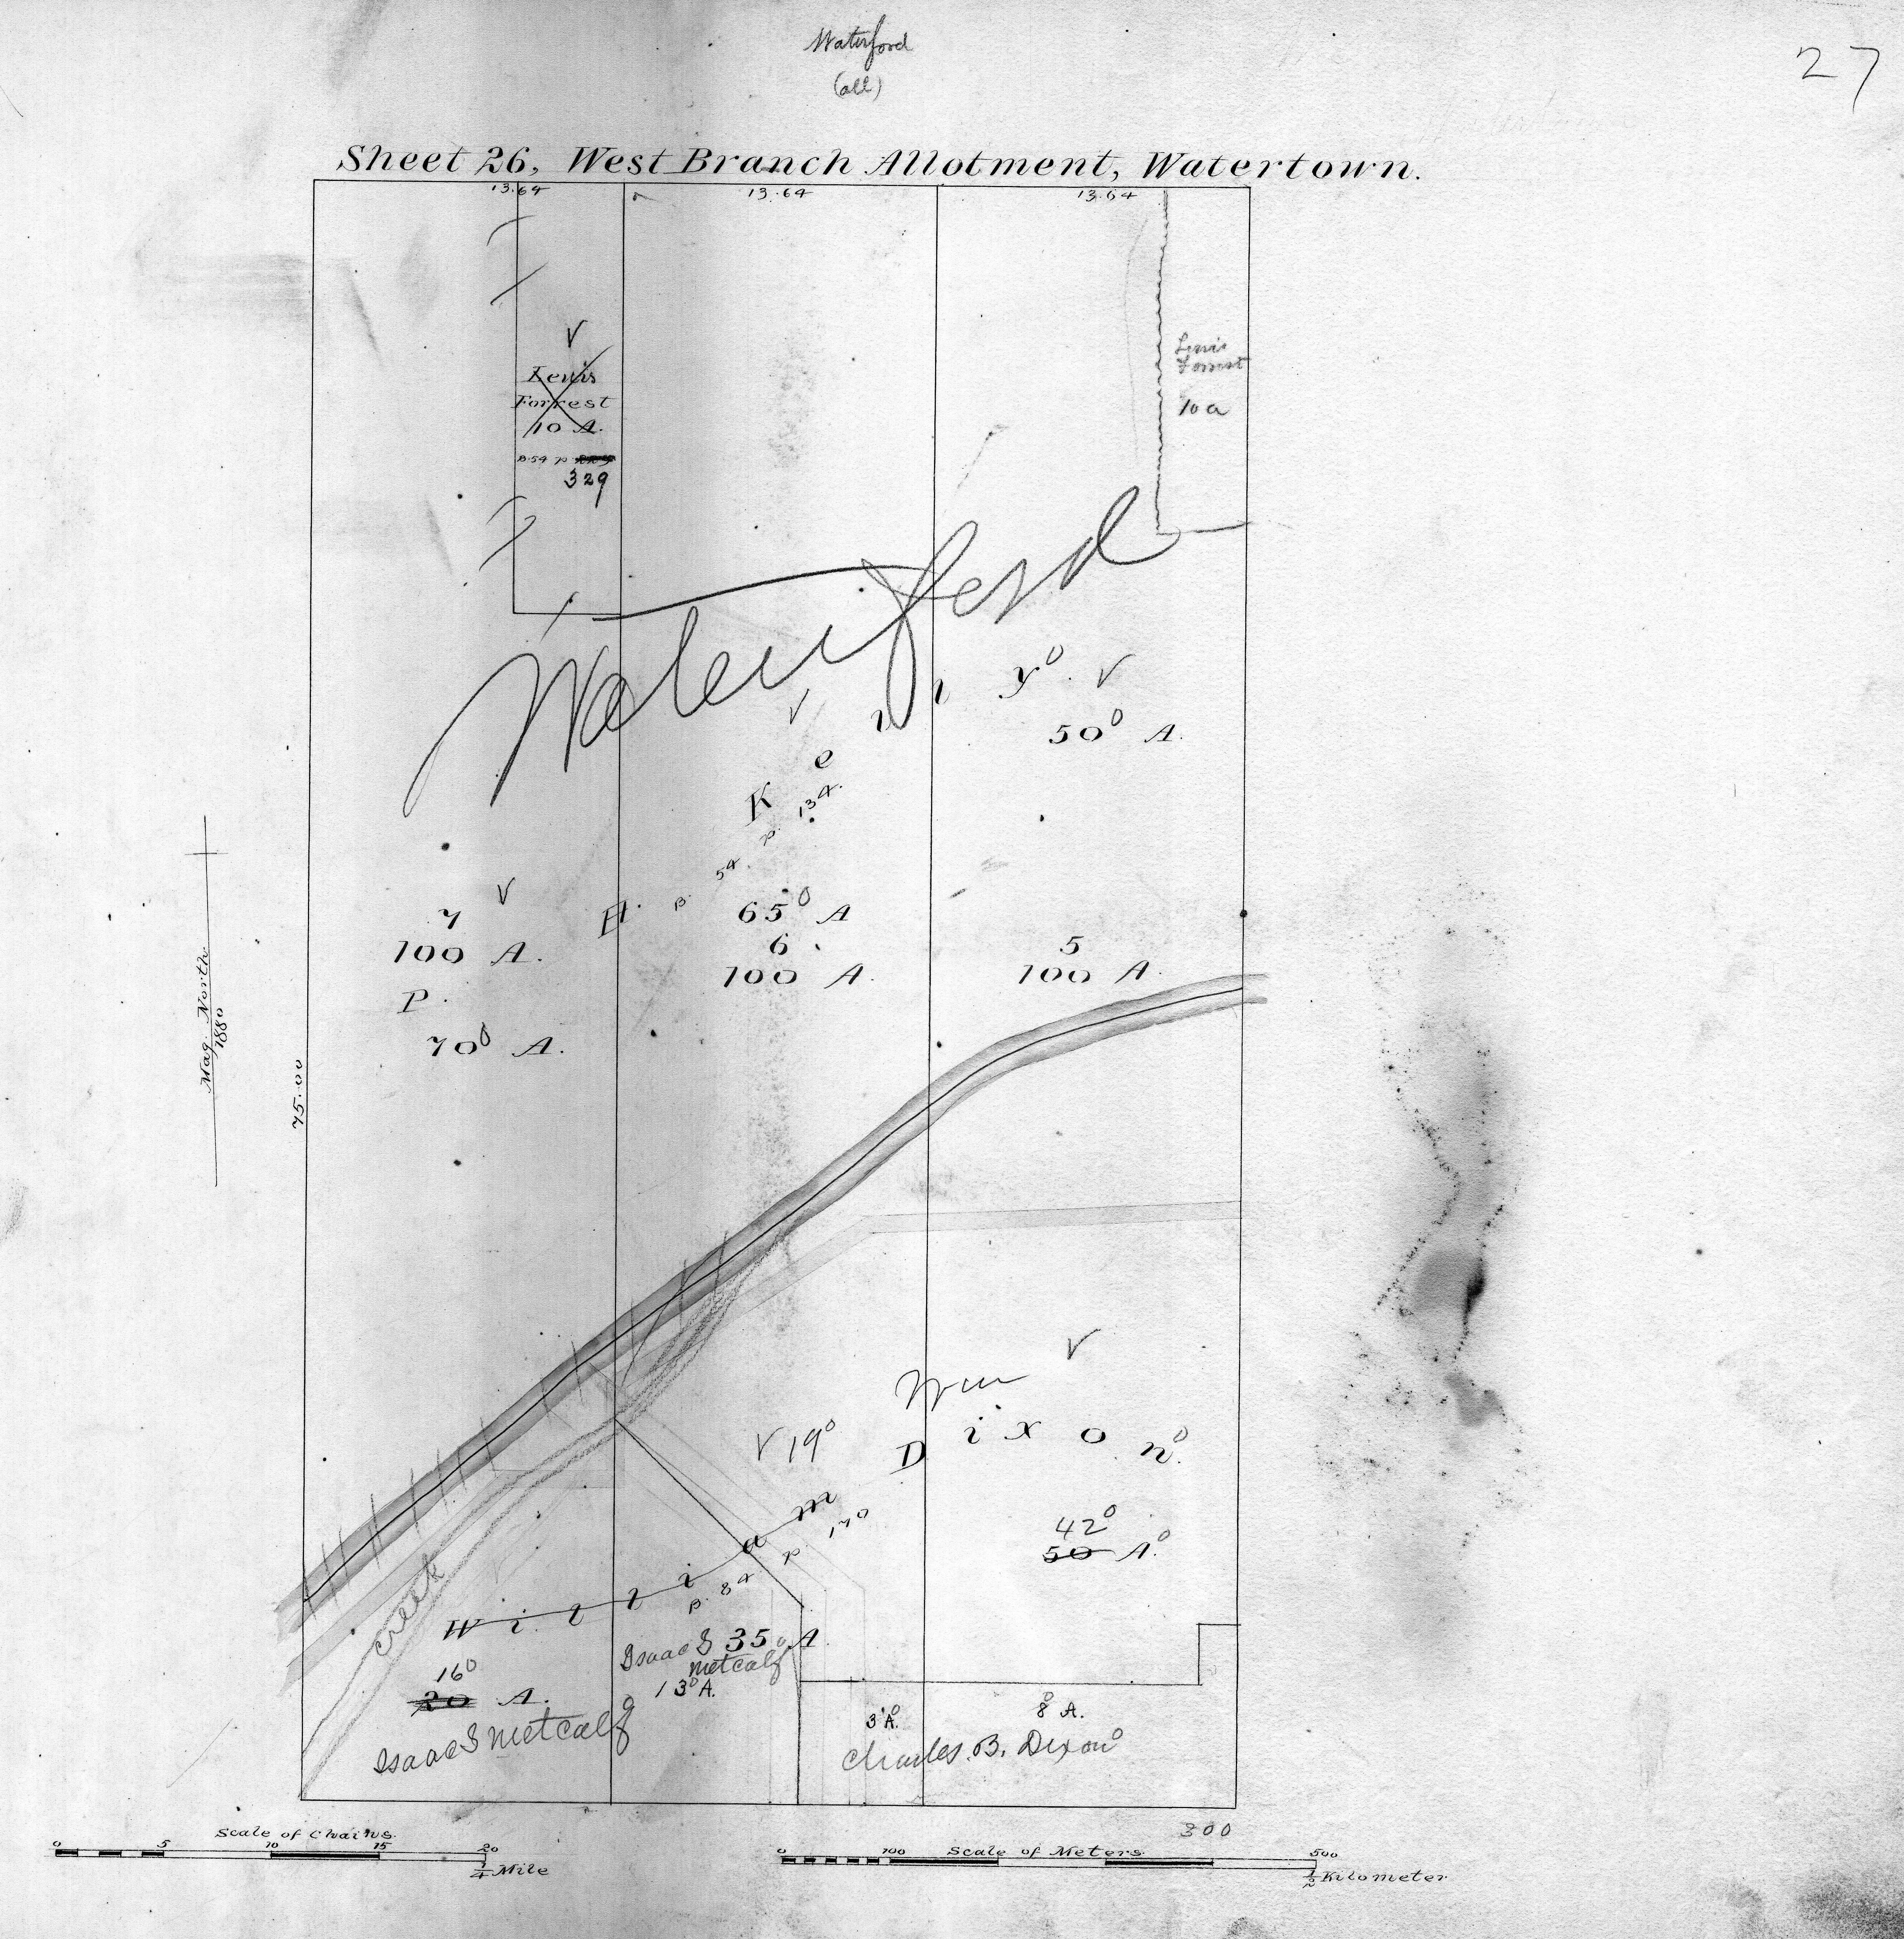 Waterford
(all)
27
Sheet 26, West Branch Allotment, Watertown.
13.64
13.64
13.64
Lewis
Forrest
10 A.
B. 54 p.
329
Lewis
Forrest
10 a
Waterford
P. H. Kelly
B. 54 p. 134.
50 A.
7
100 A.
70 A.
65 A
6
100 A.
5
100 A.
Mag. North
1880
75.00
Wm
William Dixon
B. 84 p. 170
19
42
50 A.
creek
16
20 A.
Isaac S Metcalf
35 A.
Isaac S
Metcalf
13 A.
3 A.
8 A.
Charles. B. Dixon
300
Scale of Chains.
0 5 10 15 20
1/4 Mile
Scale of Meters
0 100 500
1/2 Kilometer